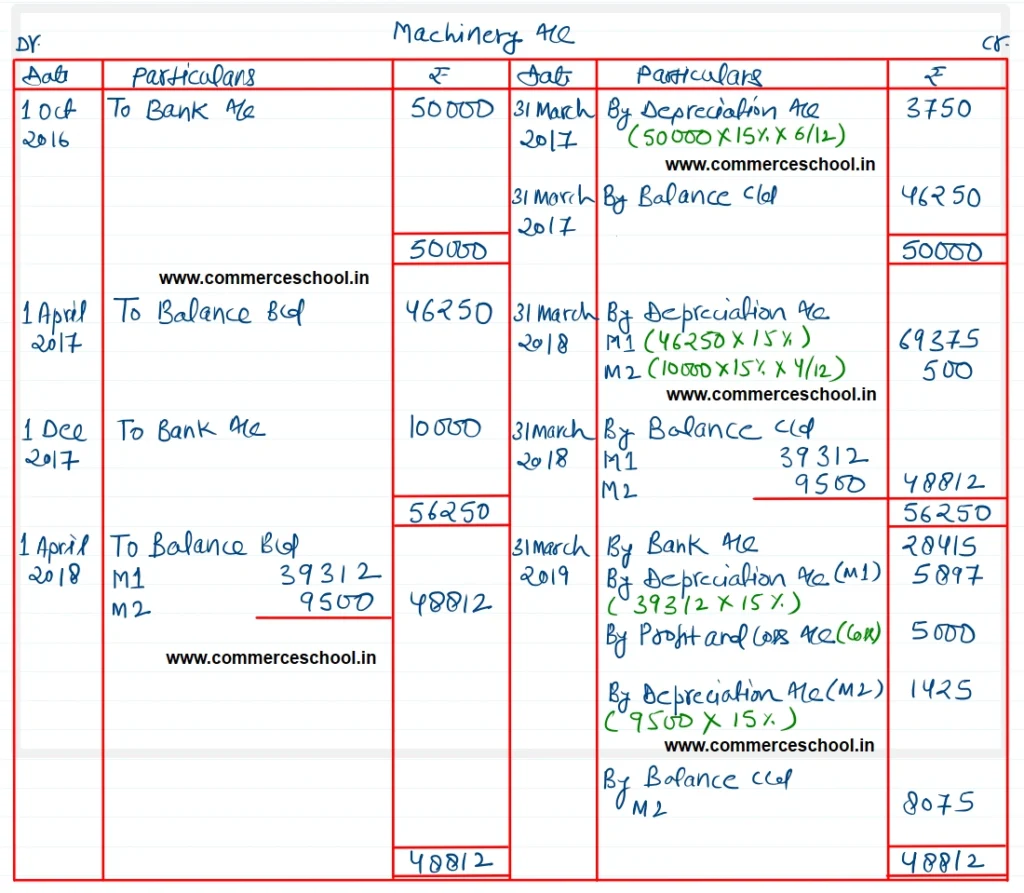 Machinery A/c
Dr. Cr.
Date Particulars ₹ Date Particulars ₹
1 Oct To Bank A/c 50000 31 March By Depreciation A/c 3750
2016 2017 (50000 X 15% X 6/12)
www.commerceschool.in
31 March By Balance c/d 46250
2017
50000 50000
www.commerceschool.in
1 April To Balance B/d 46250 31 March By Depreciation A/c
2017 2018 M1 (46250 X 15%) 69375
M2 (10000 X 15% X 4/12) 500
www.commerceschool.in
1 Dec To Bank A/c 10000 31 March By Balance c/d
2017 2018 M1 39312
M2 9500 48812
56250 56250
1 April To Balance B/d 31 March By Bank A/c 28415
2018 M1 39312 2019 By Depreciation A/c (M1) 5897
M2 9500 48812 (39312 X 15%)
By Profit and Loss A/c (Loss) 5000
www.commerceschool.in
By Depreciation A/c (M2) 1425
(9500 X 15%)
www.commerceschool.in
By Balance c/d
M2 8075
48812 48812